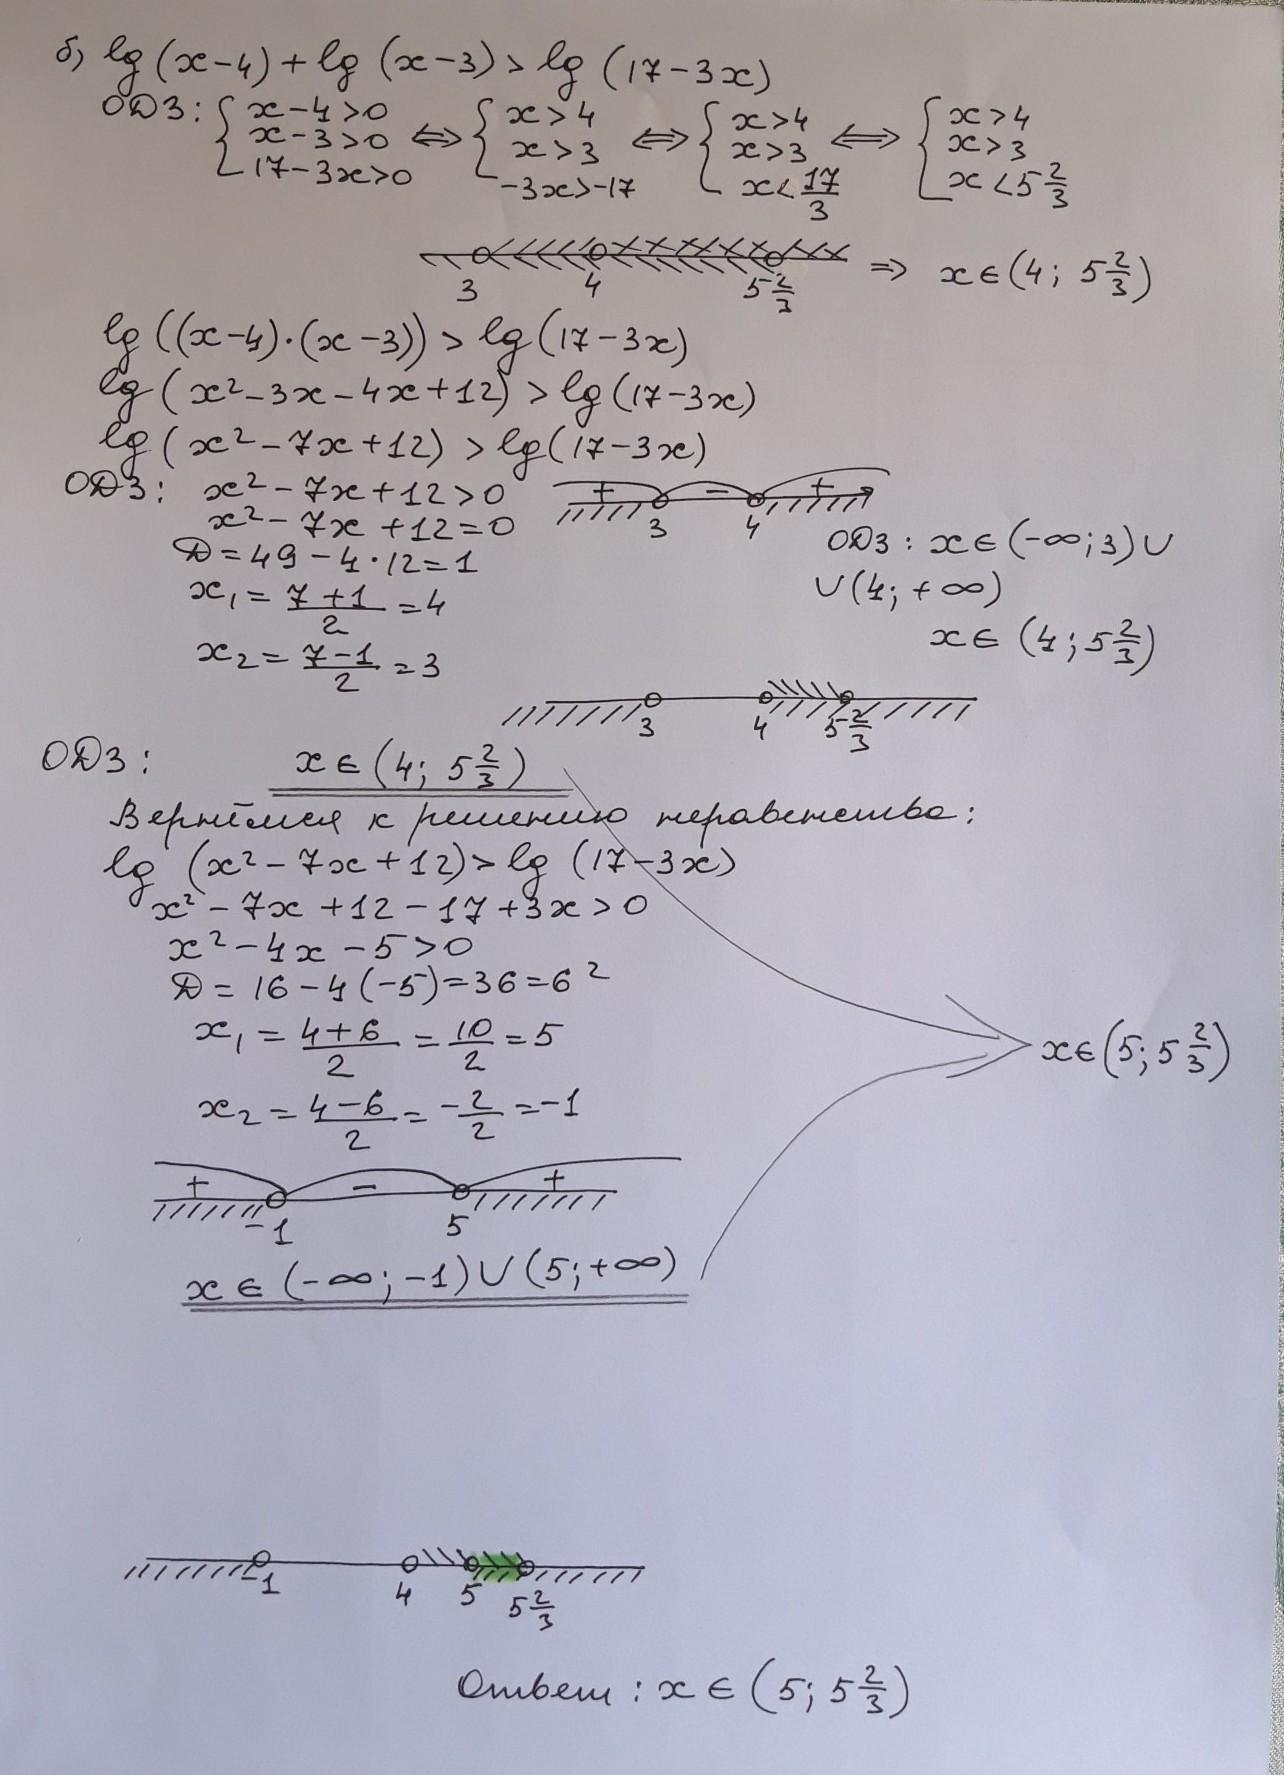 б) lg (x-4) + lg (x-3) > lg (17-3x)
ОДЗ: { x-4>0 x-3>0 17-3x>0 ⇔ { x>4 x>3 -3x>-17 ⇔ { x>4 x>3 x<17/3 ⇔ { x>4 x>3 x<5 2/3
3 4 5 2/3 ⇒ x∈(4; 5 2/3)
lg ((x-4)·(x-3)) > lg (17-3x)
lg (x²-3x-4x+12) > lg (17-3x)
lg (x²-7x+12) > lg (17-3x)
ОДЗ: x²-7x+12>0
x²-7x+12=0
D=49-4·12=1
x₁ = (7+1)/2 = 4
x₂ = (7-1)/2 = 3
+ - +
3 4
ОДЗ: x∈(-∞;3)∪
∪(4;+∞)
x∈ (4; 5 2/3)
3 4 5 2/3
ОДЗ: x∈(4; 5 2/3)
Вернёмся к решению неравенства:
lg (x²-7x+12) > lg (17-3x)
x²-7x+12-17+3x>0
x²-4x-5>0
D = 16-4(-5)=36=6²
x₁ = (4+6)/2 = 10/2 = 5
x₂ = (4-6)/2 = -2/2 = -1
x∈(5; 5 2/3)
+ - +
-1 5
x∈ (-∞;-1)∪(5;+∞)
-1 4 5 5 2/3
Ответ: x∈ (5; 5 2/3)